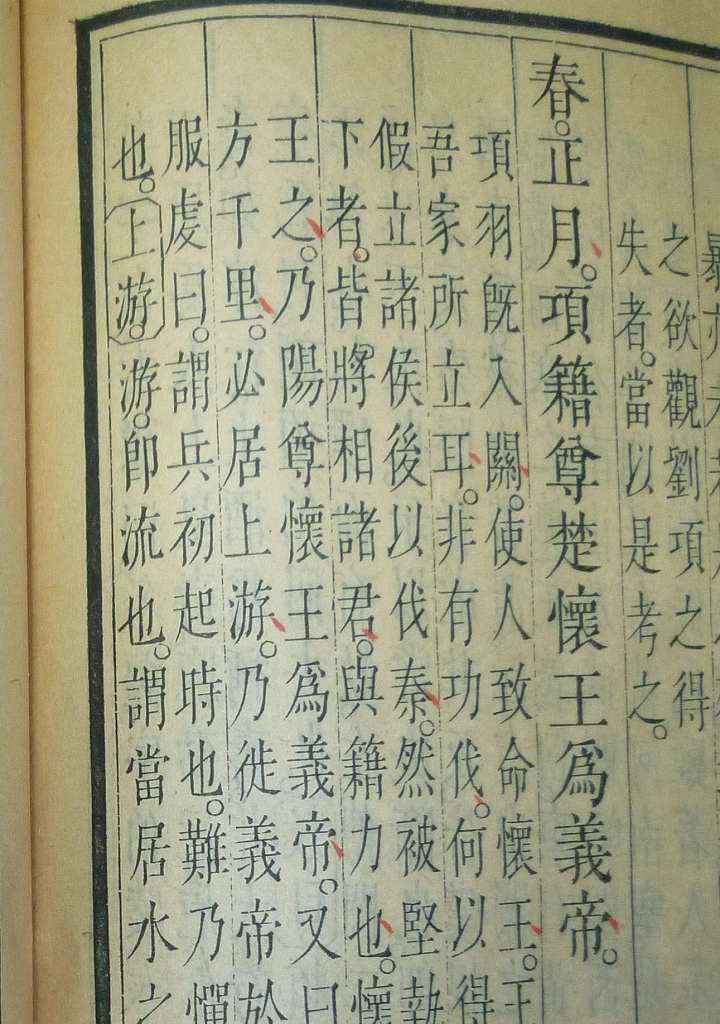 之欲觀劉項之得
失者。當以是考之。
春。正月。項籍尊楚懷王爲義帝。
項羽旣入關。使人致命懷王。王
吾家所立耳。非有功伐。何以得
假立諸侯後以伐秦。然被堅執
下者。皆將相諸君。與籍力也。懷
王之。乃陽尊懷王爲義帝。又曰
方千里。必居上游。乃徙義帝於
服虔曰。謂兵初起時也。難乃憚
也。上游。游。卽流也。謂當居水之